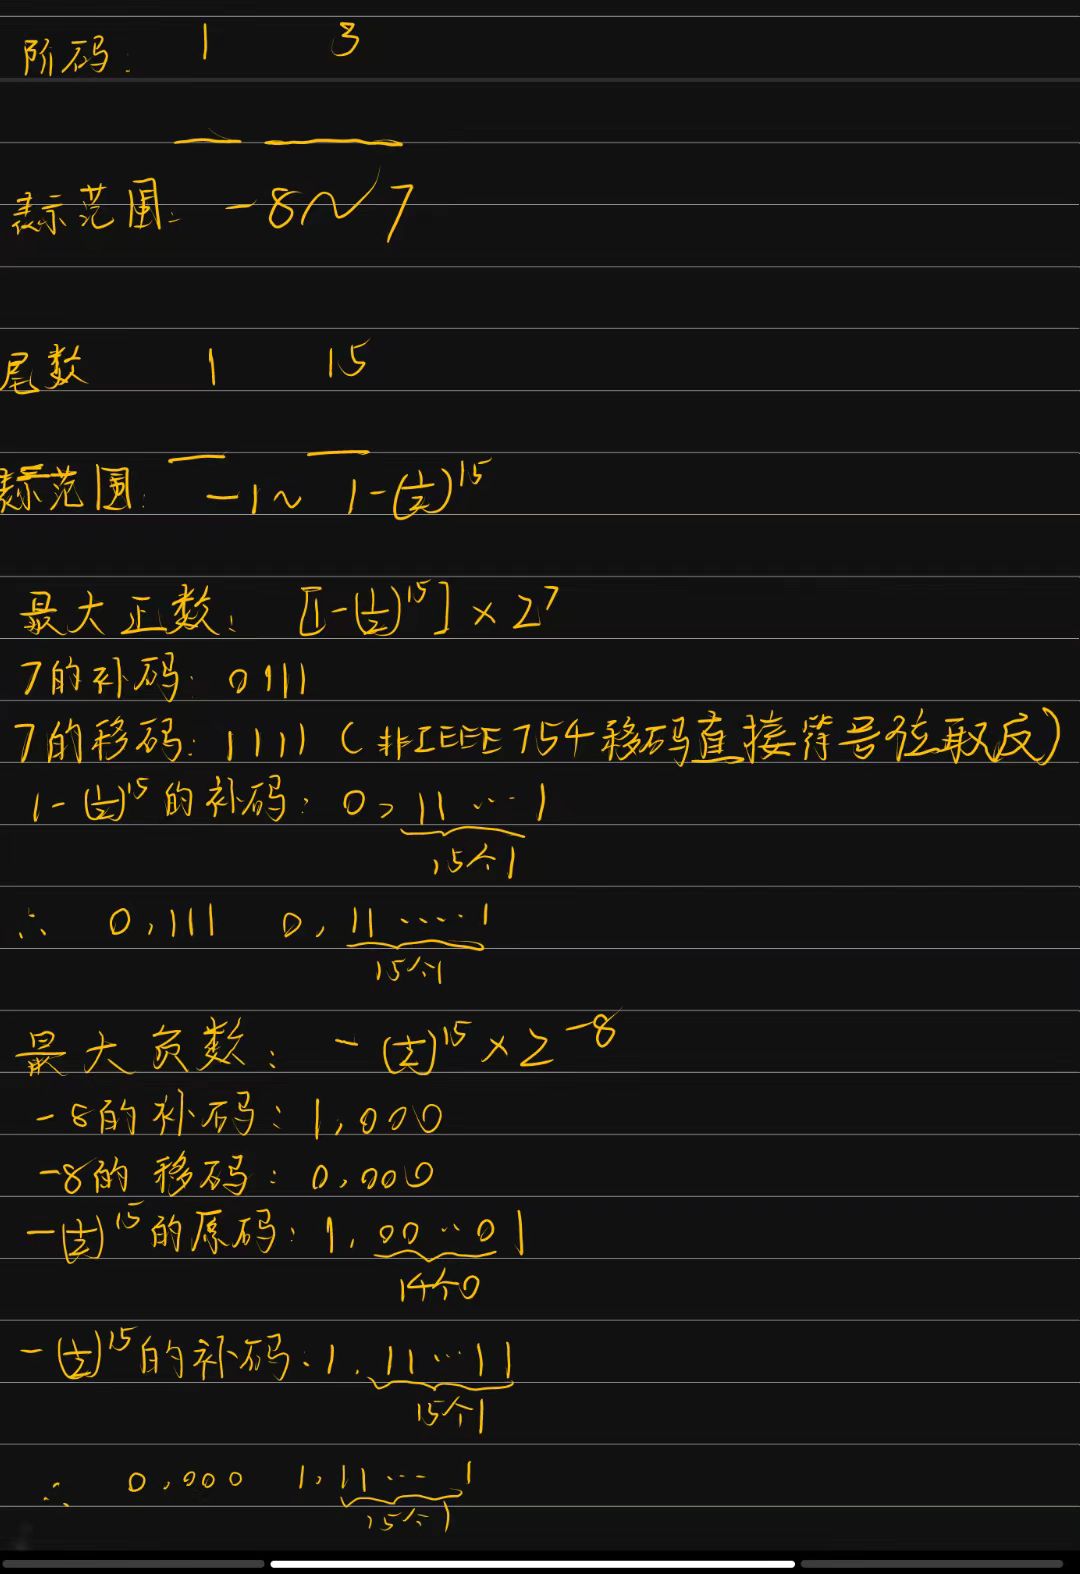 阶码: 1 3
表示范围: -8~7
尾数 1 15
表示范围: -1~ 1-(1/2)^15
最大正数: [1-(1/2)^15]×2^7
7的补码: 0111
7的移码: 1111 (非IEEE754移码直接符号位取反)
1-(1/2)^15的补码: 0, 11…1
15个1
∴ 0,111 0, 11…..1
15个1
最大负数: -(1/2)^15×2^-8
-8的补码: 1,000
-8的移码: 0,000
-(1/2)^15的原码: 1, 00..01
14个0
-(1/2)^15的补码: 1. 11…11
15个1
∴ 0,000 1, 11…1
15个1